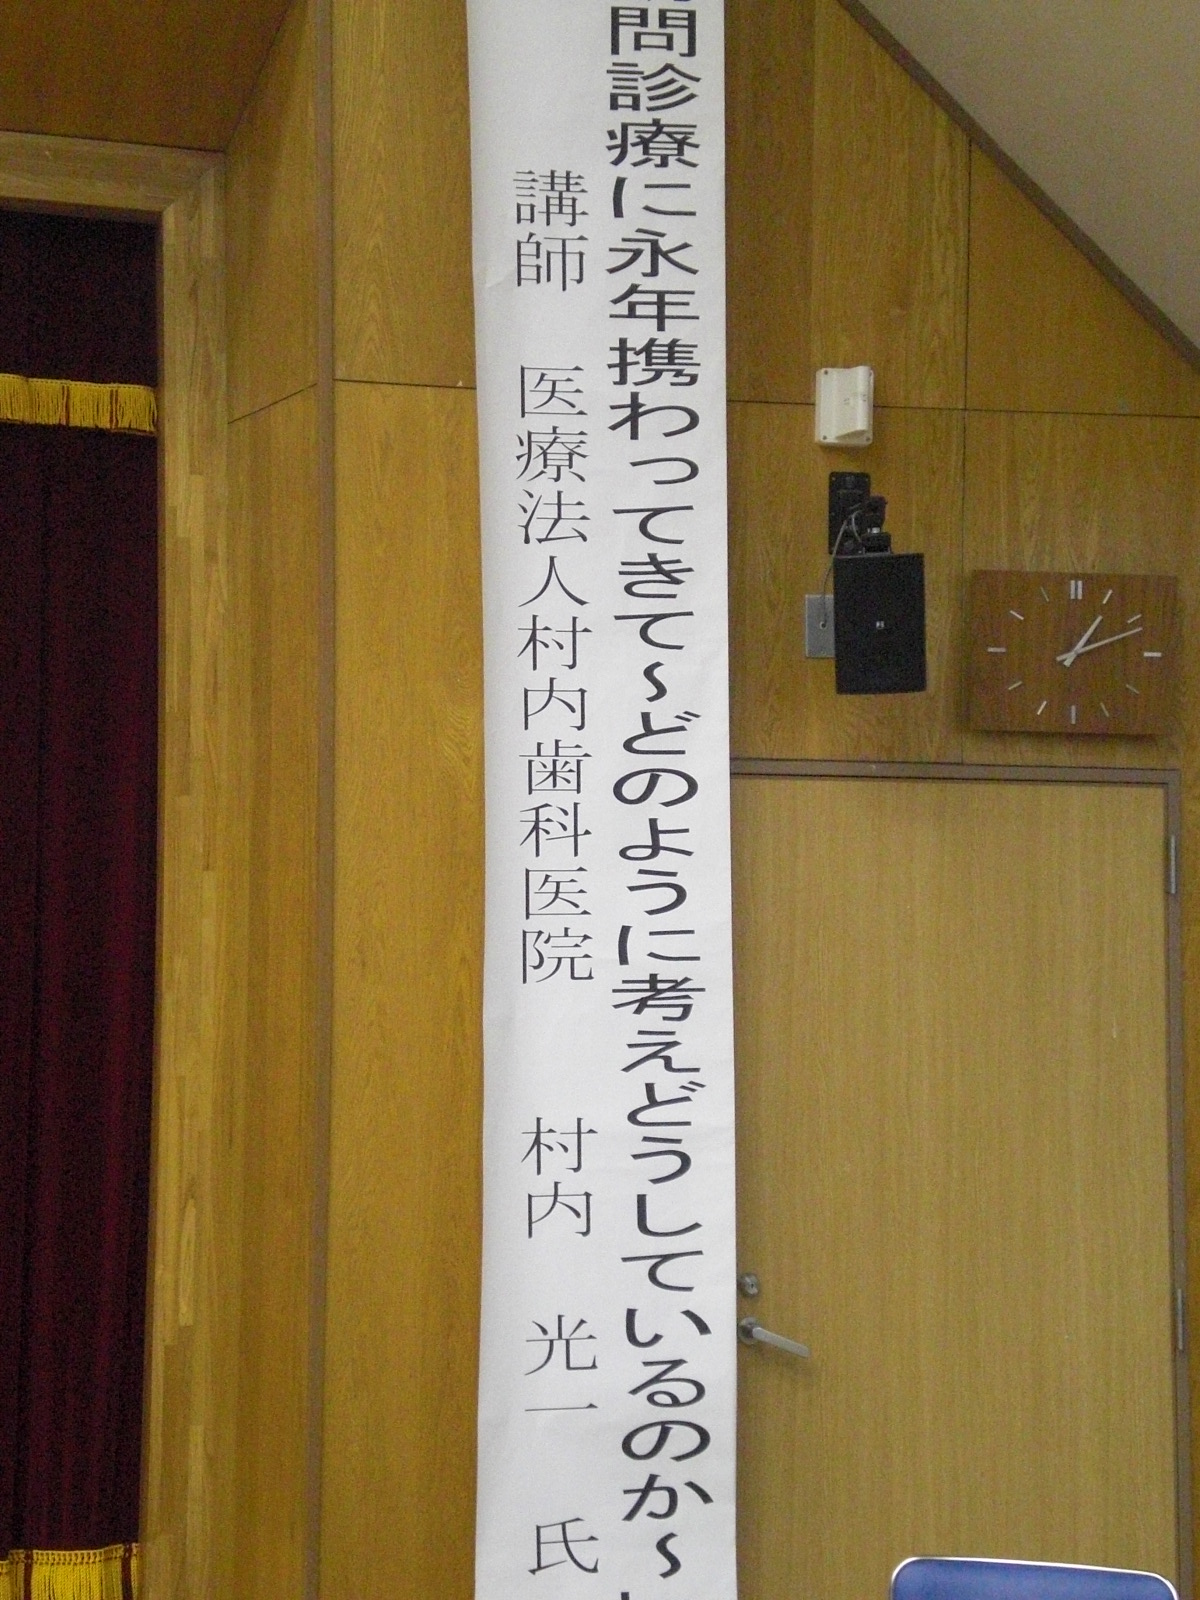 問診療に永年携わってきて～どのように考えどうしているのか～
講師　医療法人村内歯科医院　村内　光一　氏